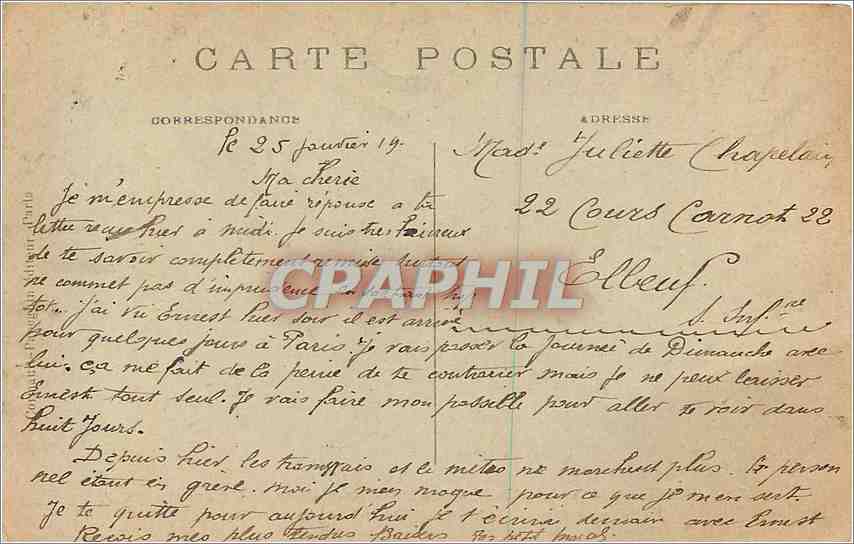 CARTE POSTALE
CORRESPONDANCE
ADRESSE
le 25 Janvier 19.
Ma cherie
Je m'empresse de faire réponse a ta
lettre reçue hier à midi. Je suis tres heureux
de te savoir completement remise surtout
ne commet pas d'imprudence
tot. j'ai vu Ernest hier soir il est arrivé
pour quelques jours à Paris. Je vais passer la Journée de Dimanche avec
lui. ça me fait de la peine de te contrarier mais je ne peux laisser
Ernest tout seul. Je vais faire mon possible pour aller te voir dans
huit Jours.
Depuis hier les tramways et le métro ne marchent plus. le person
nel étant en grève. moi je m'en moque pour ce que je m'en sert.
Je te quitte pour aujourd'hui je t'écrirai demain avec Ernest
Reçois mes plus tendres Baisers
Madle Juliette Chapelain
22 Cours Carnot 22
Elbeuf.
S. Infre
CPAPHIL
Paris